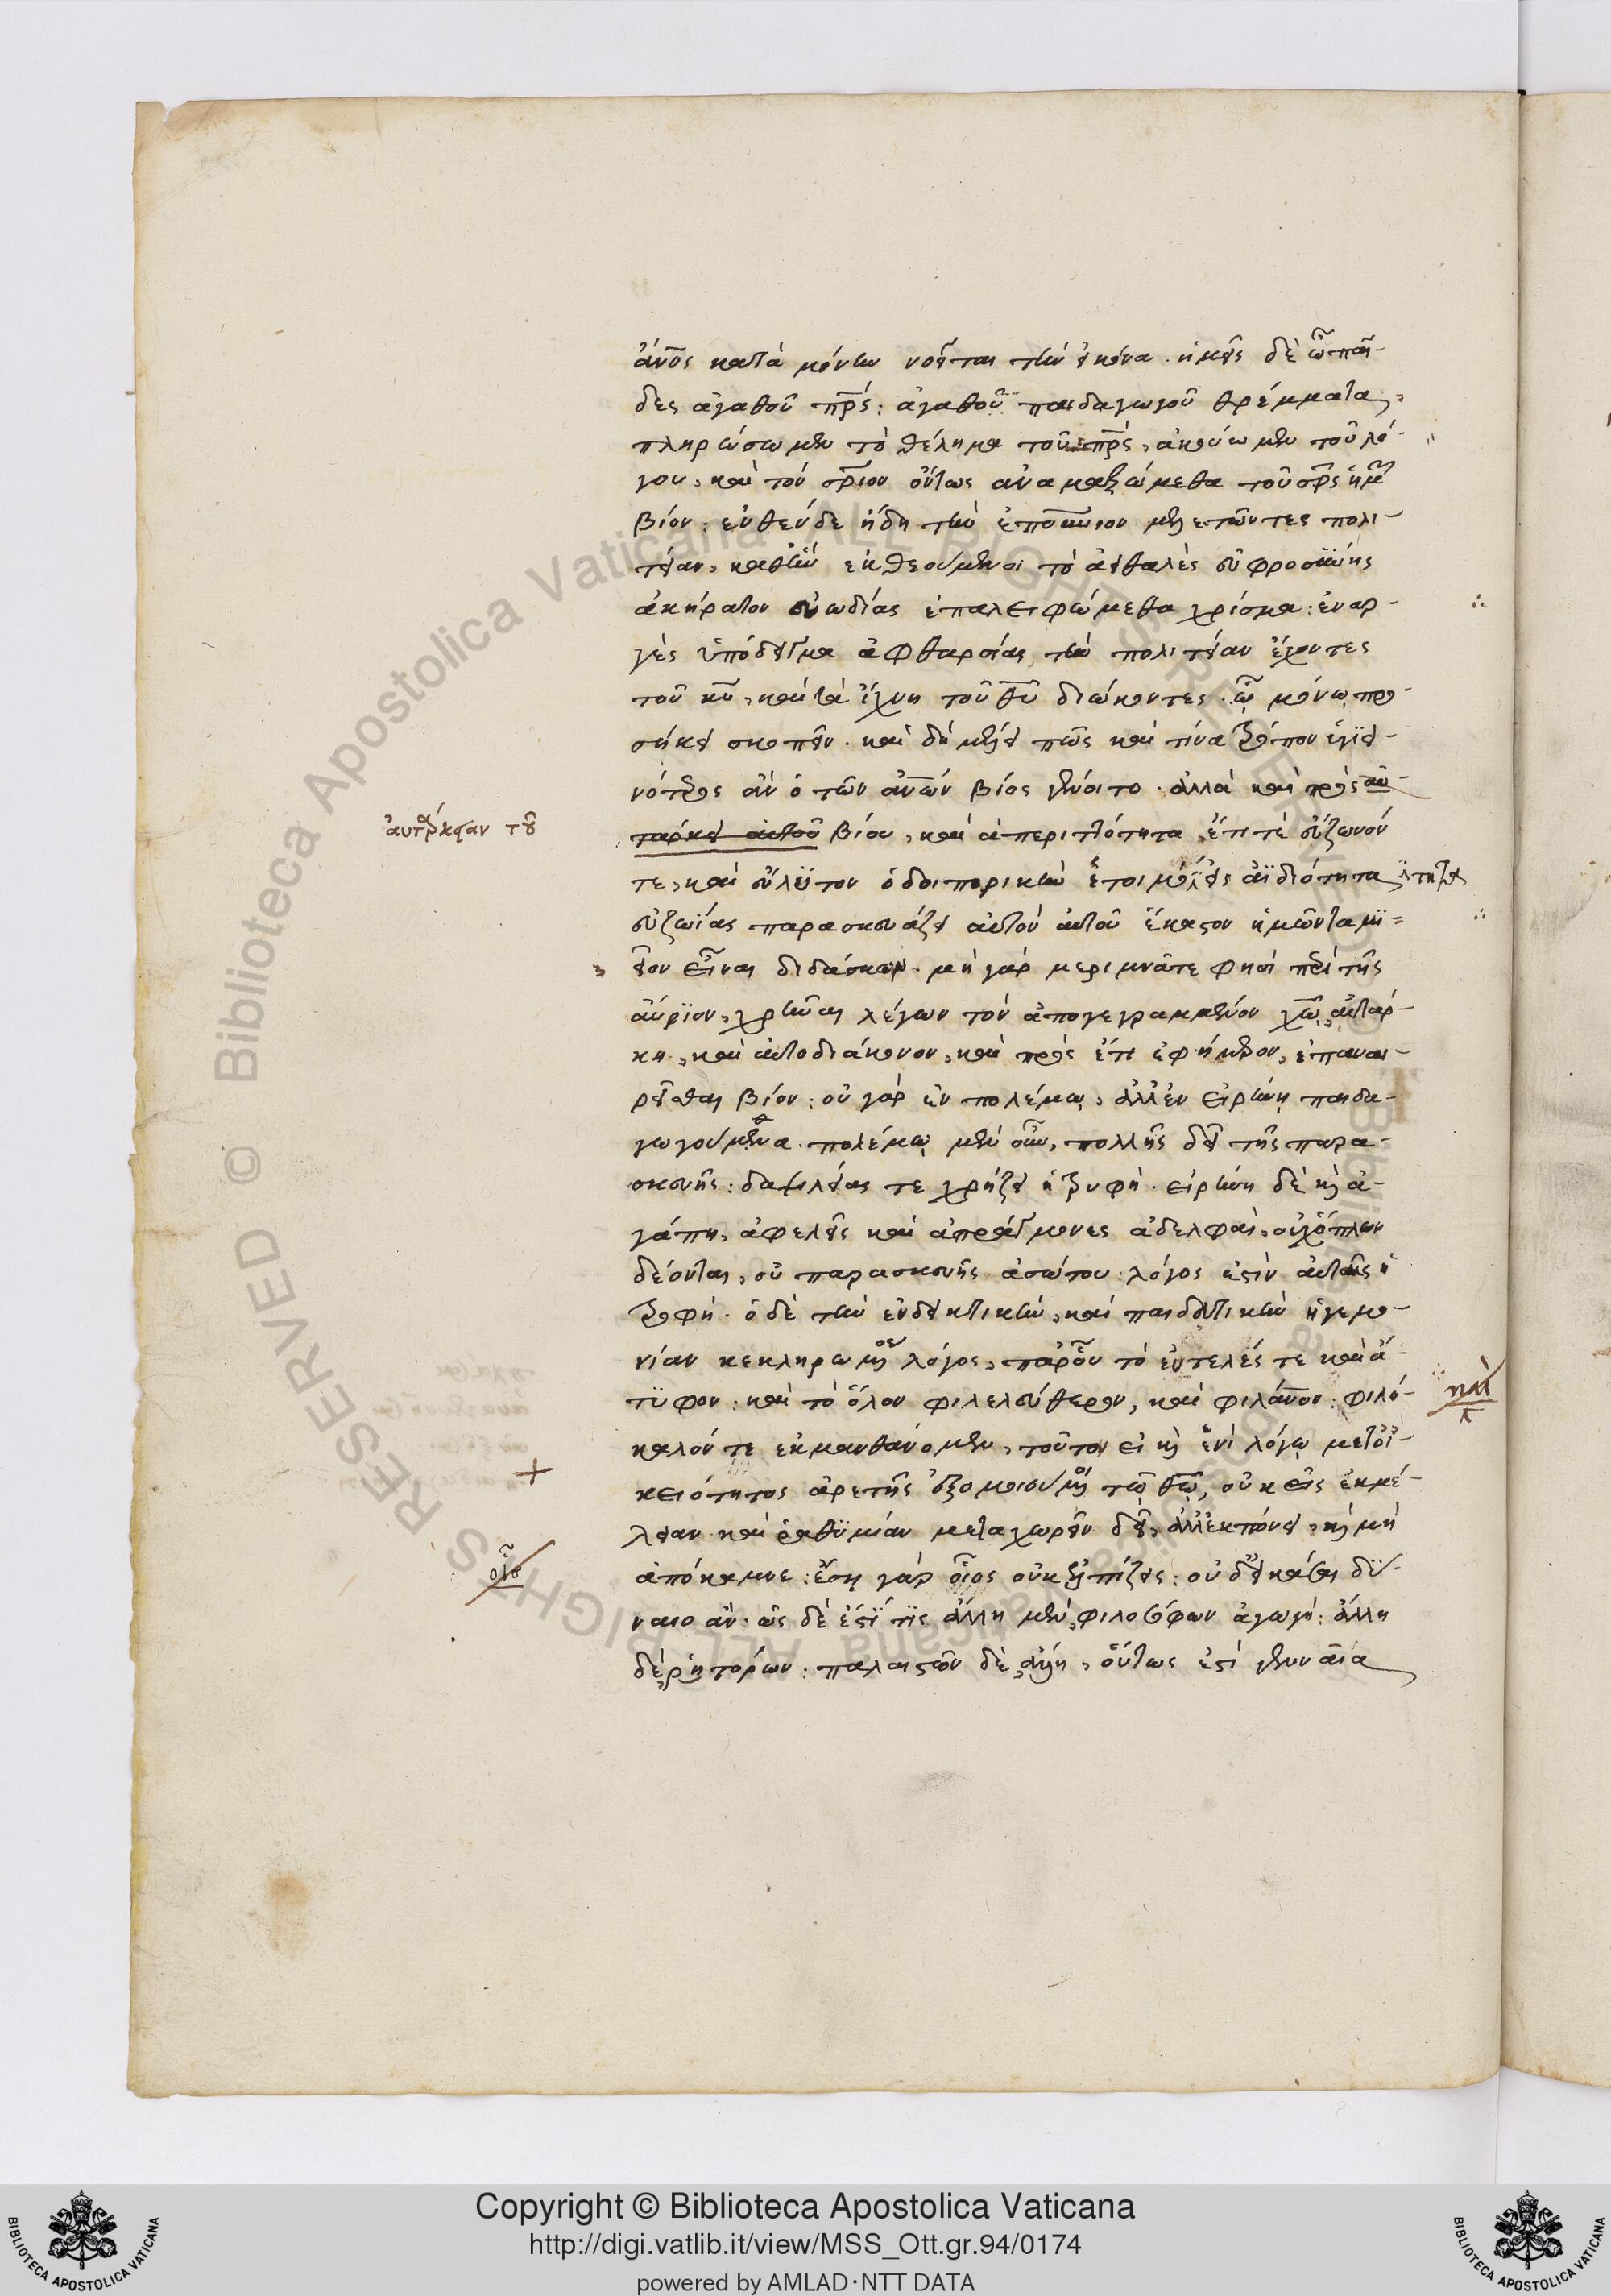 ἄνος κατὰ μόνην νοεῖται τὴν εἰκόνα. ἡμεῖς δὲ ὦ παῖ-
δες ἀγαθοῦ πρς· ἀγαθοῦ παιδαγωγοῦ θρέμματα,
πληρώσωμεν τὸ θέλημα τοῦ πρς, ἀκούωμεν τοῦ λό-
γου, καὶ τὸν σριον ὄντως ἀναμαξώμεθα τοῦ σρς ἡμ
βίον: ἐνθένδε ἤδη τὴν ἐπουνιον μελετῶντες πολι-
τείαν, καθ' ἣν ἐκθεούμενοι τὸ ἀειθαλὲς εὐφροσύνης
ἀκήρατον εὐωδίας ἐπαλειφώμεθα χρίσμα: ἐναρ-
γὲς ὑπόδειγμα ἀφθαρσίας τὴν πολιτείαν ἔχοντες
τοῦ κυ, καὶ τὰ ἴχνη τοῦ θυ διώκοντες. ᾧ μόνῳ προ-
σήκει σκοπεῖν. καὶ δὴ μέλει πῶς καὶ τίνα τρόπον ὑγιει-
νότερος ἂν ὁ τῶν ἀνων βίος γένοιτο. ἀλλὰ καὶ πρὸς αὐ-
αὐτάρκειαν τοῦ
τάρκει αὐτοῦ βίου, καὶ ἀπεριττότητα, ἔτι τὲ εὔζωνόν
τε, καὶ εὔλυτον ὁδοιπορικὴν
εὐζωΐας παρασκευάζει αὐτὸν αὐτοῦ ἕκαστον ἡμῶν ταμι-
εῖον εἶναι διδάσκων. μὴ γὰρ μεριμνᾶτε φησὶ περὶ τῆς
αὔριον, χρῆναι λέγων τὸν ἀπογεγραμμένον χω, αὐτάρ-
κη, καὶ αὐτοδιάκονον, καὶ πρὸς ἔτι ἐφήμερον, ἐπαναι-
ρεῖσθαι βίον: οὐ γὰρ ἐν πολέμῳ, ἀλλ' ἐν εἰρήνῃ παιδα-
γωγούμεθα. πολέμῳ μὲν οὖν, πολλῆς δεῖ τῆς παρα-
σκευῆς: δαψιλείας τε χρῄζει ἡ τρυφή. εἰρήνη δὲ καὶ ἀ-
γάπη, ἀφελεῖς καὶ ἀπράγμονες ἀδελφαὶ, οὐχ ὅπλων
δέονται, οὐ παρασκευῆς ἀσώτου: λόγος ἐστὶν αὐταῖς ἡ
τροφή. ὁ δὲ τὴν ἐνδεικτικὴν, καὶ παιδευτικὴν ἡγεμο-
νίαν κεκληρωμένος λόγος, παρ' οὗ τὸ εὐτελές τε καὶ ἄ-
τυφον: καὶ τὸ ὅλον φιλελεύθερον, καὶ φιλάνον: φιλό-
καλόν τε ἐκμανθάνομεν, τοῦτον εἰ καὶ ἑνὶ λόγῳ μετ' οἰ-
κειότητος ἀρετῆς ἐξομοιούμενοι τῷ θω, οὐκ εἰς ἐκμέ-
λειαν καὶ ῥαθυμίαν μεταχωρεῖν δεῖ, ἀλλ' ἐκπόνει, καὶ μὴ
ἀπόκαμνε: ἔσῃ γὰρ οἷος οὐκ ἐλπίζεις: οὐδ' εἰκάσαι δύ-
ναιο ἄν. ὡς δὲ ἐστί τις ἄλλη μὲν φιλοσόφων ἀγωγὴ: ἄλλη
δὲ ῥητόρων: παλαιστῶν δὲ ἄλλη, οὕτως ἐστὶ γενναία
Copyright © Biblioteca Apostolica Vaticana
http://digi.vatlib.it/view/MSS_Ott.gr.94/0174
powered by AMLAD·NTT DATA